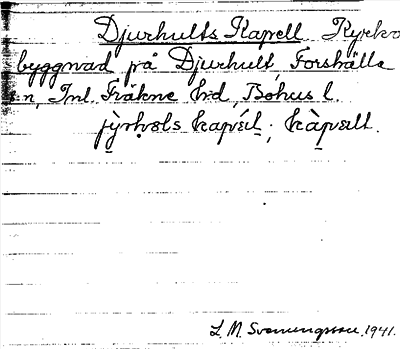 Djurhults Kapell Kyrko
byggnad på Djurhult Forshälla
s:n, Inl. Fräkne hrd, Bohus l.
jỳrhəls kapsíl ; kàpsəll.
L. M. Svenungsson. 1941.